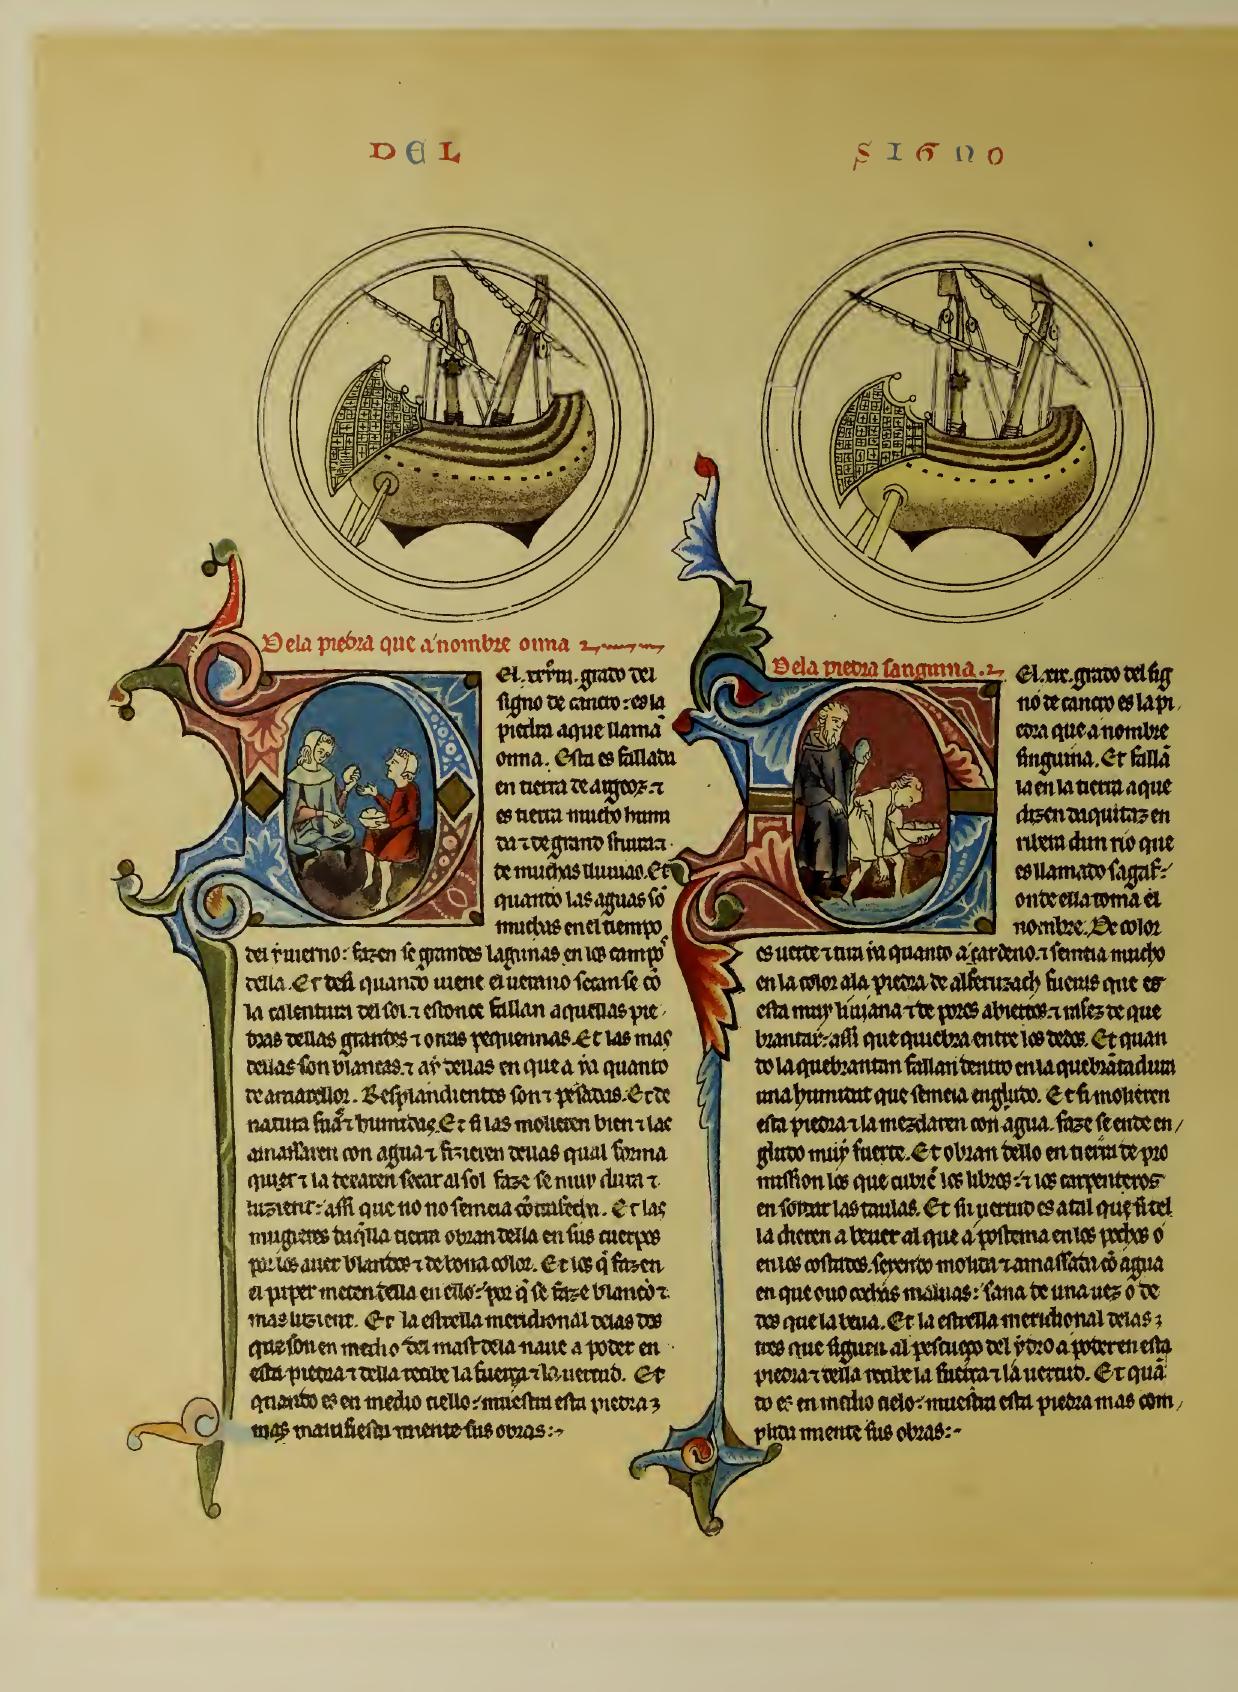 DEL SIGNO
Dela piedra que a nombre onna
El .xxviii. grado del
signo de cancro: es la
piedra a que llamã
onna. Esta es fallada
en tierra de
es tierra mucho humi
da ⁊ de grand friura ⁊
de muchas lluuias. Et
quando las aguas sõ
muchas en el tiempo
del yuierno: fazen se grandes lagunas en los campos
della. Et desi quando uiene el uerano secan se cõ
la calentura del sol. ⁊ estonce fallan aquellas pie
dras dellas grandes ⁊ otras pequennas. Et las mas
dellas son blancas. ⁊ ay dellas en que a ya quanto
de amarellor. Resplandientes son ⁊ pesadas. Et de
natura fria ⁊ humidas. Et si las molieren bien ⁊ las
amassaren con agua ⁊ fizieren dellas qual forma
quier ⁊ la dexaren secar al sol faze se muy dura ⁊
luzient: assi que no no semeia
mugieres daq̃lla tierra obran della en sus cuerpos
por los auer blandos ⁊ de bona color. Et los q̃ fazen
el paper meten della en ello: por q̃ se faze blanco ⁊
mas luzient. Et la estrella meridional delas dos
que son en medio del mast dela naue a poder en
esta piedra ⁊ della recibe la fuerça ⁊ la uertud. Et
quando es en medio cielo: muestra esta piedra
mas manifiesta miente sus obras:-
Dela piedra sanguina.
El .xix. grado del sig
no de cancro es la pi
edra que a nombre
singuina. Et fallã
la en la tierra a que
dizen daquitaz en
ribera dun rio que
es llamado
onde ella toma el
nombre. De color
es uerde ⁊ tira ya quanto a cardeno. ⁊ semeia mucho
en la color ala piedra de fueras que es
esta muy liuiana ⁊ de poros abiertos. ⁊ rafez de que
brantar: assi que quiebra entre los dedos. Et quan
do la quebrantan fallan dentro en la quebrãtadura
una humidat que semeia engludo. Et si molieren
esta piedra ⁊ la mezclaren con agua. faze se ende en/
gludo muy fuerte. Et obran dello en tierra de pro
mission los que cubrẽ los libros: ⁊ los carpenteros
en soldar las taulas. Et su uertud es atal que si del
la dieren a beuer al que a postema en los pechos o
en los costados. seyendo molida ⁊ amassada cõ agua
en que ouo cochas maluas: sana de una uez o de
dos que la beua. Et la estrella meridional delas
tres que siguen al pescueço del ydro a poder en esta
piedra ⁊ della recibe la fuerça ⁊ la uertud. Et quã
do es en medio cielo: muestra esta piedra mas com/
plida miente sus obras:-